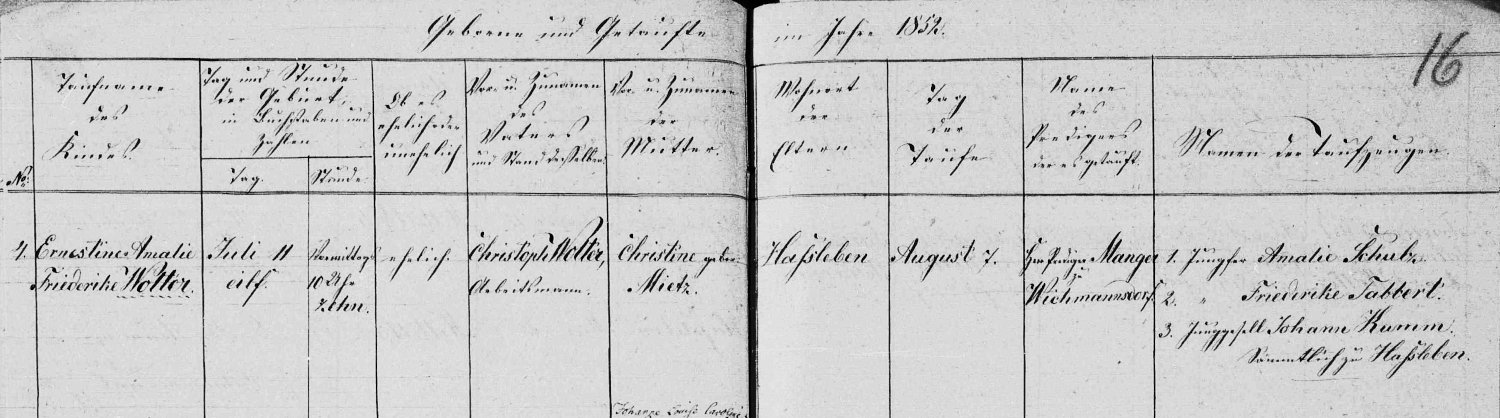 Geborne und Getaufte im Jahre 1852.
16
No.
Taufname
des
Kindes.
Tag und Stunde
der Geburt,
in Buchstaben und
Zahlen
Tag.
Stunde
Ob es
ehelich oder
unehelich
Vor- u. Zunamen
des
Vaters
und Stand desselben.
Vor- u. Zunamen
der
Mutter.
Wohnort
der
Eltern.
Tag
der
Taufe
Name
des
Predigers
der es getauft.
Namen der Taufzeugen.
4.
Ernestine Amalie
Friederike Wolter.
Juli 11
eilf.
Vormittags
10 Uhr
zehn.
ehelich.
Christoph Wolter,
Arbeitsmann.
Christine geb.
Mietz.
Haßleben
August 7.
Herr Prediger Manger
zu
Wichmannsdorf.
1. Jungfer Amalie Schulz.
2. " Friederike Tabbert.
3. Junggesell Johann Kumm.
Sämmtlich zu Haßleben.
Johanne Louise Caroline